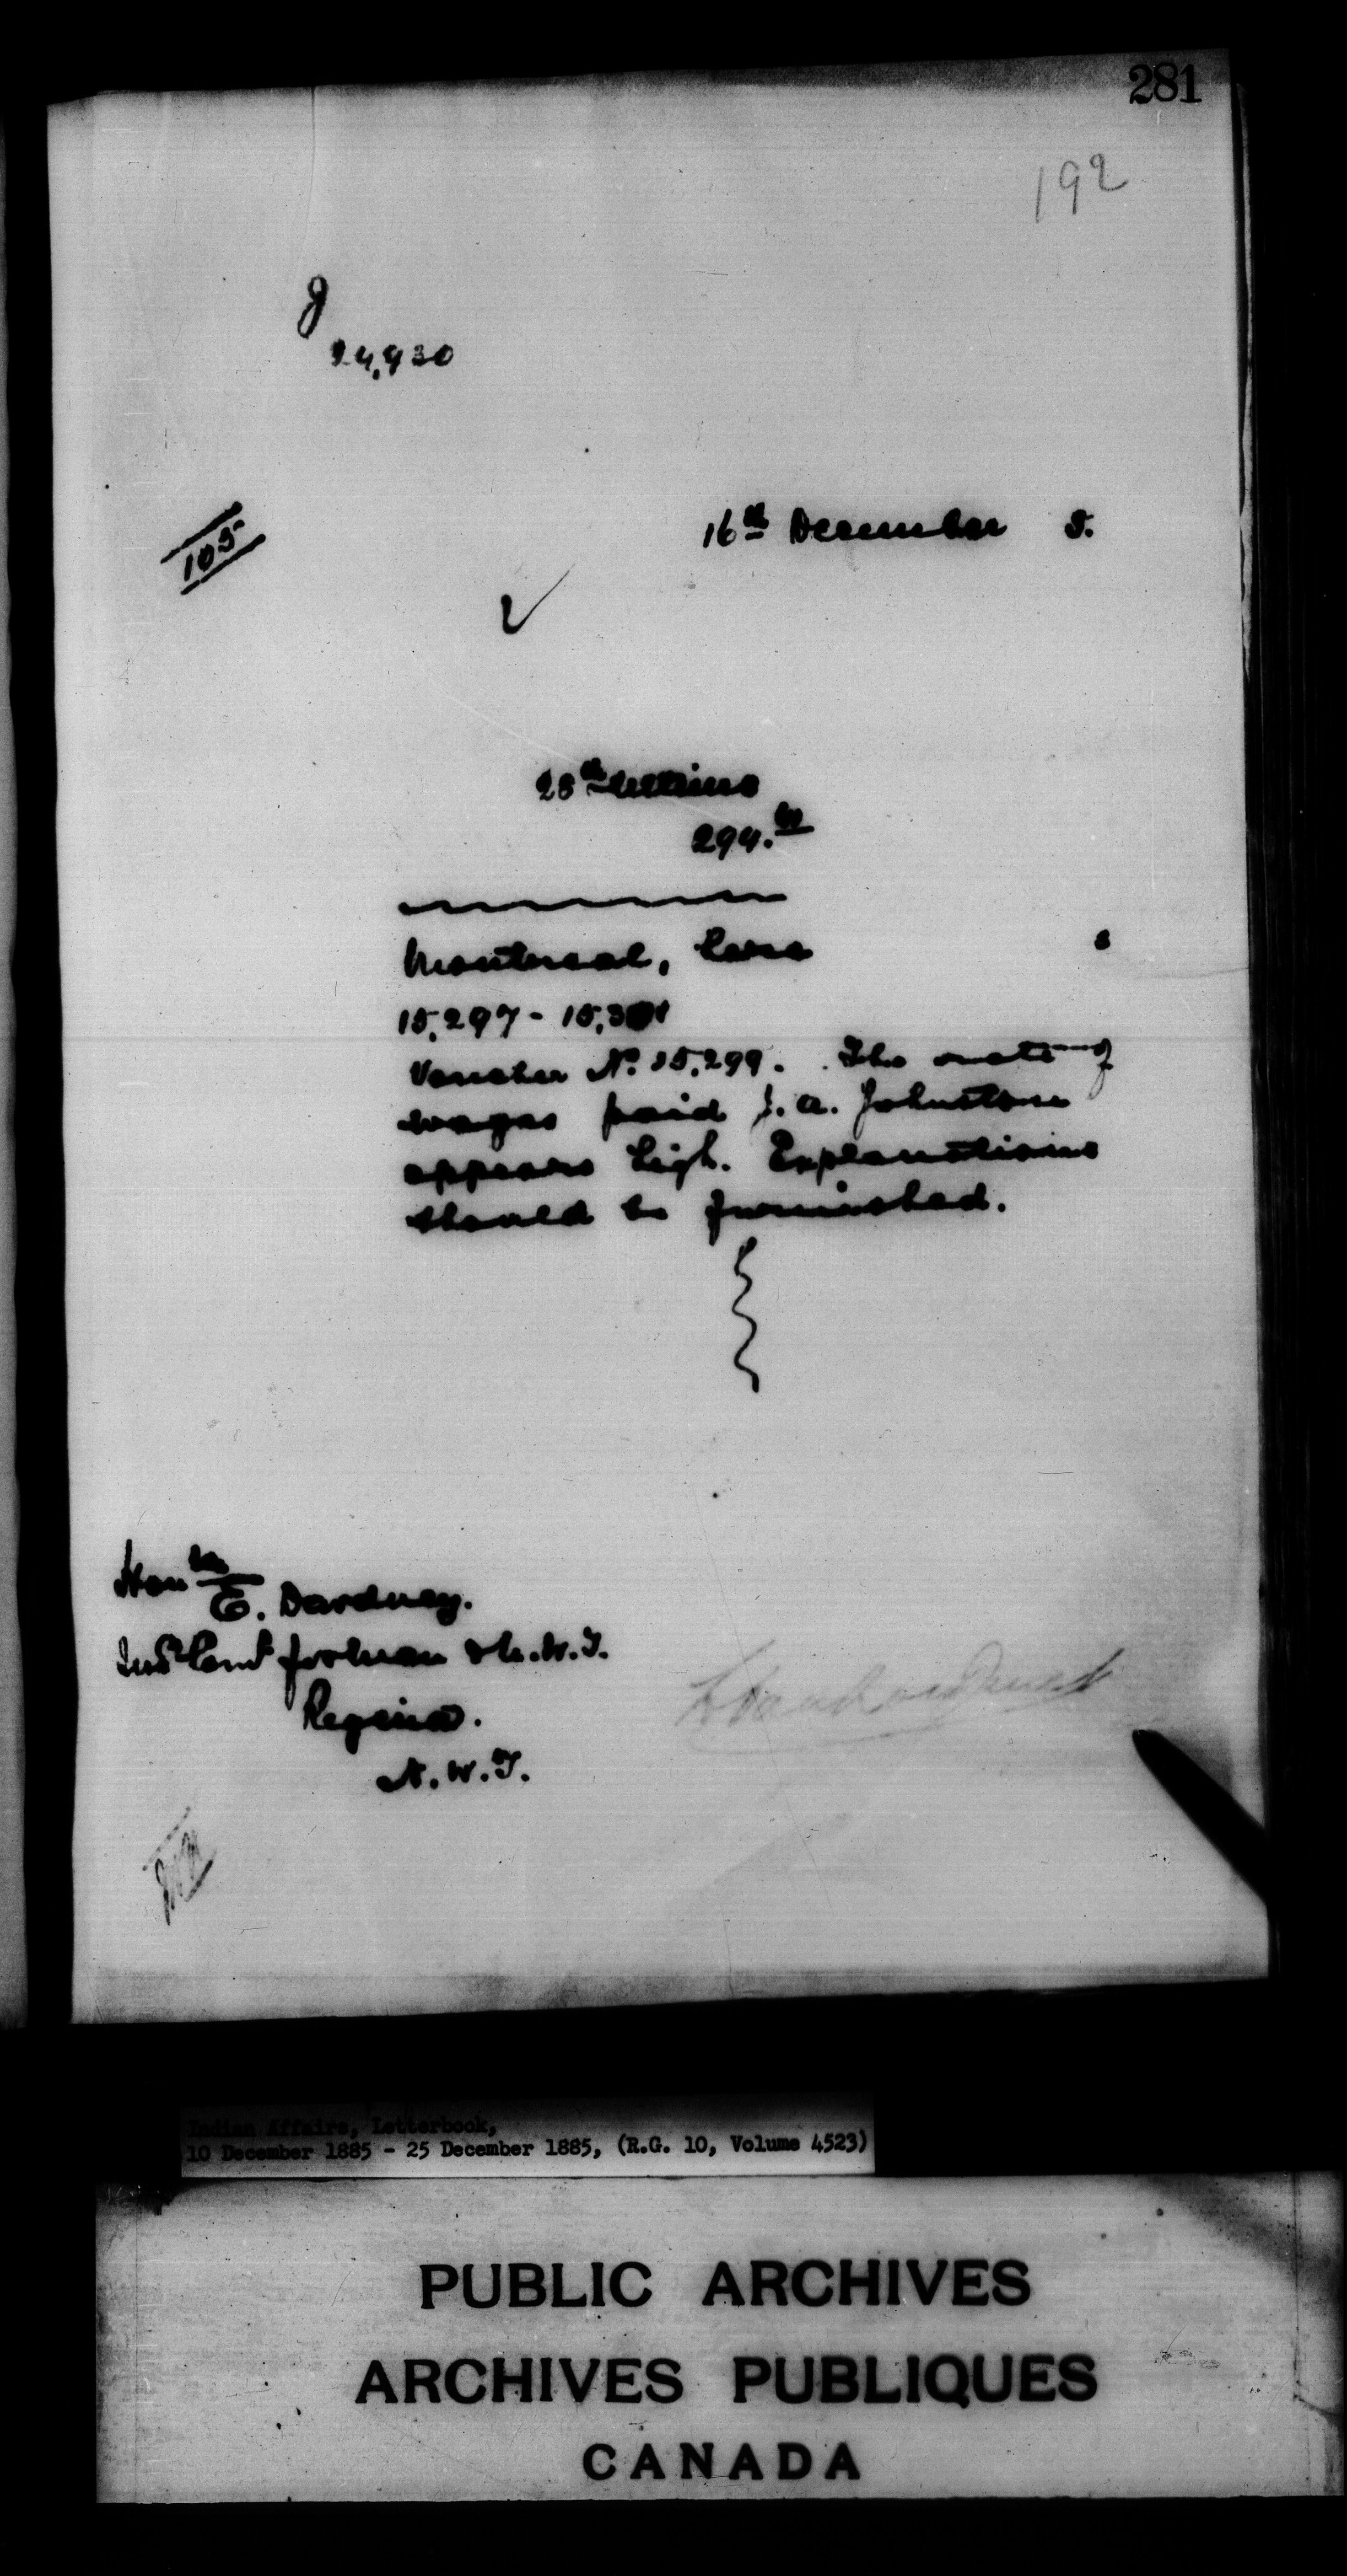 281
192
J
24,930
105
16th December 5.
28th ultimo
294.00
Montreal,
15,297 - 15,301
Voucher No. 15,299. The rate of
wages paid J. A. Johnstone
appears high. Explanations
should be furnished.
Honble
E. Dewdney.
Ind Comr for Man & N.W.T.
Regina.
N.W.T.
Indian Affairs, Letterbook,
10 December 1885 - 25 December 1885, (R.G. 10, Volume 4523)
PUBLIC ARCHIVES
ARCHIVES PUBLIQUES
CANADA